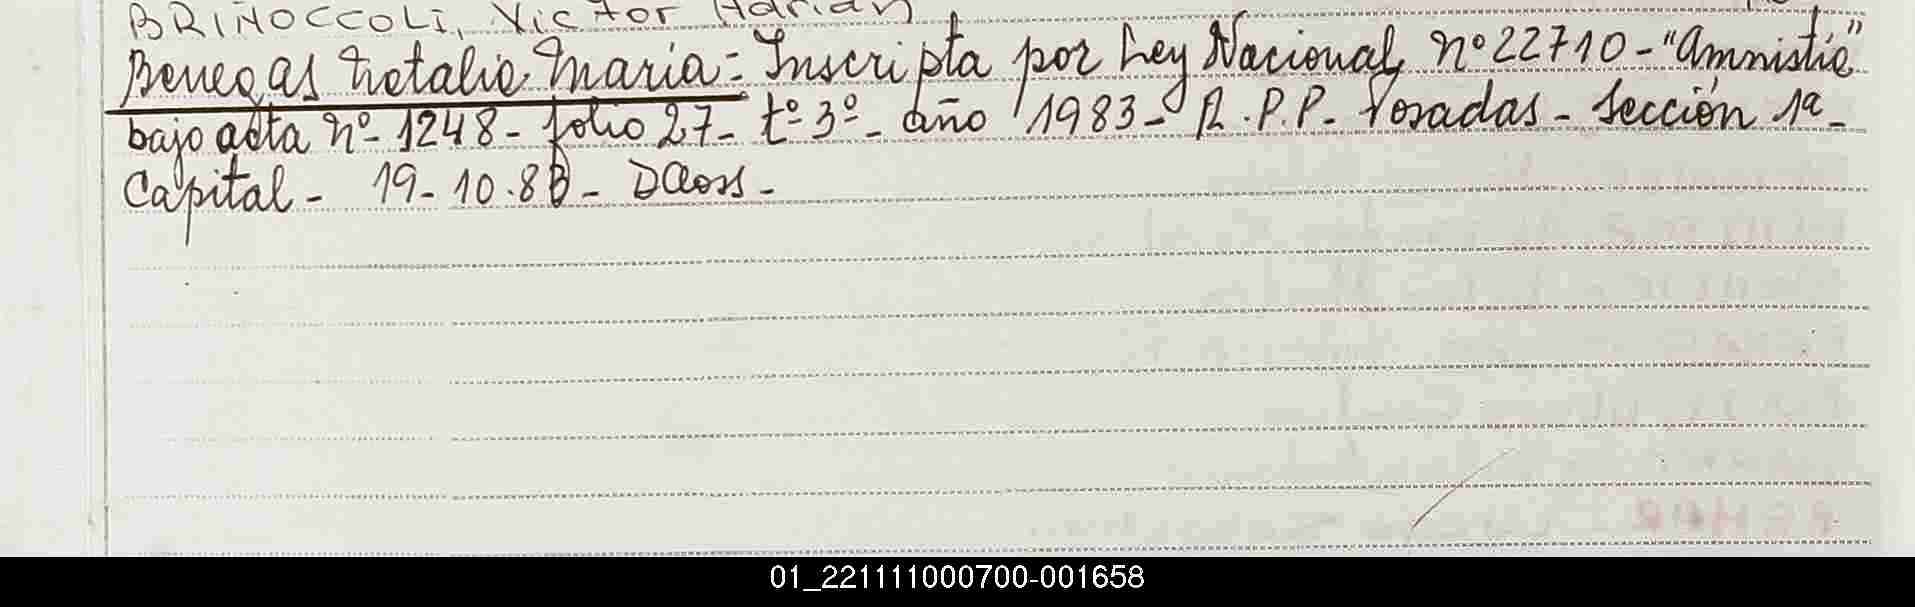 BRIÑOCCOLI, Victor Adrian
Benegas Natalia Maria = Inscripta por Ley Nacional nº 22710 - "Amnistia"
bajo acta nº - 1248 - folio 27 - tº 3º - año 1983 - R.P.P. Posadas - Sección 1ª -
Capital - 19 - 10 . 83 -
01_221111000700-001658